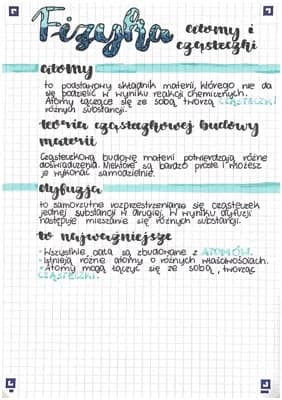 Fizyka atomy i
cząsteczki
atomy
to podstawowy składnik materii, którego nie da
się podzielić w wyniku reakcji chemicznych.
Atomy łączące się ze sobą tworzą CZĄSTECZKI
różnych substancji.
teoria cząsteczkowej budowy
materii
Cząsteczkową budowę materii potwierdzają różne
doświadczenia. Niektóre są bardzo proste i możesz
je wykonać samodzielnie.
dyfuzja
to samorzutne rozprzestrzenianie się cząsteczek
jednej substancji w drugiej. W wyniku dyfuzji
następuje mieszanie się różnych substancji.
to najważniejsze
• Wszystkie ciała są zbudowane z ATOMÓW.
• Istnieją różne atomy o różnych właściwościach.
• Atomy mogą łączyć się ze sobą, tworząc
CZĄSTECZKI.